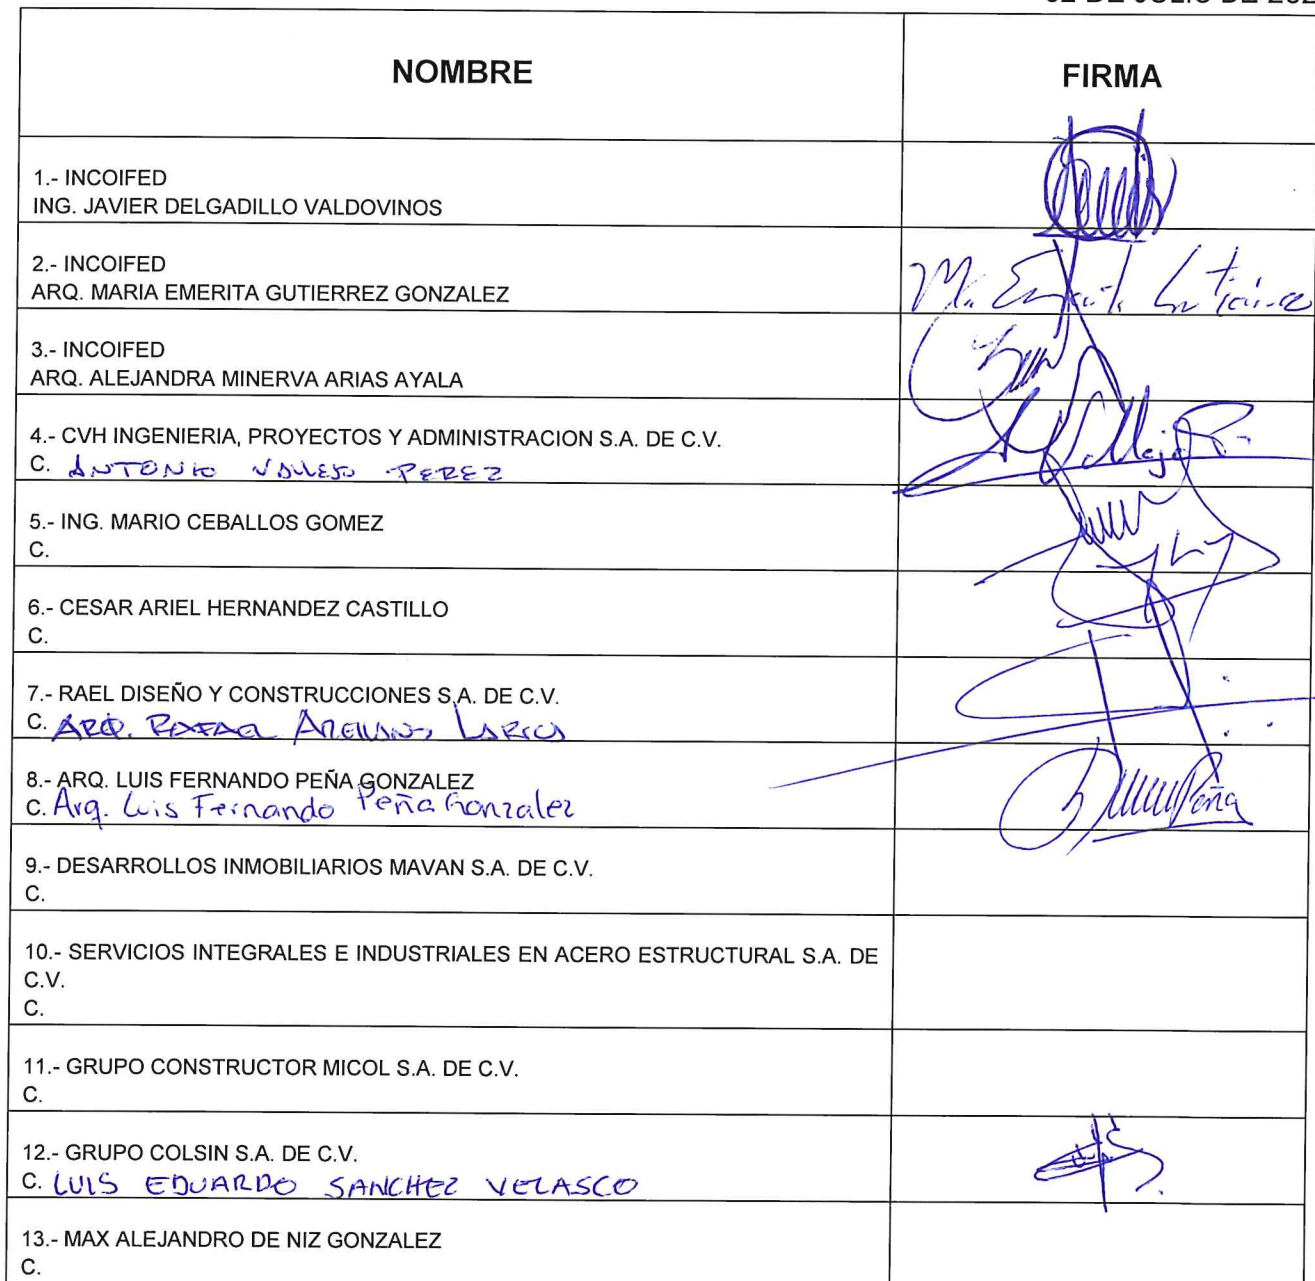 NOMBRE
FIRMA
1.- INCOIFED
ING. JAVIER DELGADILLO VALDOVINOS
2.- INCOIFED
ARQ. MARIA EMERITA GUTIERREZ GONZALEZ
Ma Emerita Gutierrez
3.- INCOIFED
ARQ. ALEJANDRA MINERVA ARIAS AYALA
4.- CVH INGENIERIA, PROYECTOS Y ADMINISTRACION S.A. DE C.V.
C. ANTONIO VALLEJO PEREZ
5.- ING. MARIO CEBALLOS GOMEZ
C.
6.- CESAR ARIEL HERNANDEZ CASTILLO
C.
7.- RAEL DISEÑO Y CONSTRUCCIONES S.A. DE C.V.
C. ARQ. RAFAEL ARELLANO LARIOS
8.- ARQ. LUIS FERNANDO PEÑA GONZALEZ
C. Arq. Luis Fernando Peña Gonzalez
Peña
9.- DESARROLLOS INMOBILIARIOS MAVAN S.A. DE C.V.
C.
10.- SERVICIOS INTEGRALES E INDUSTRIALES EN ACERO ESTRUCTURAL S.A. DE
C.V.
C.
11.- GRUPO CONSTRUCTOR MICOL S.A. DE C.V.
C.
12.- GRUPO COLSIN S.A. DE C.V.
C. LUIS EDUARDO SANCHEZ VELASCO
13.- MAX ALEJANDRO DE NIZ GONZALEZ
C.